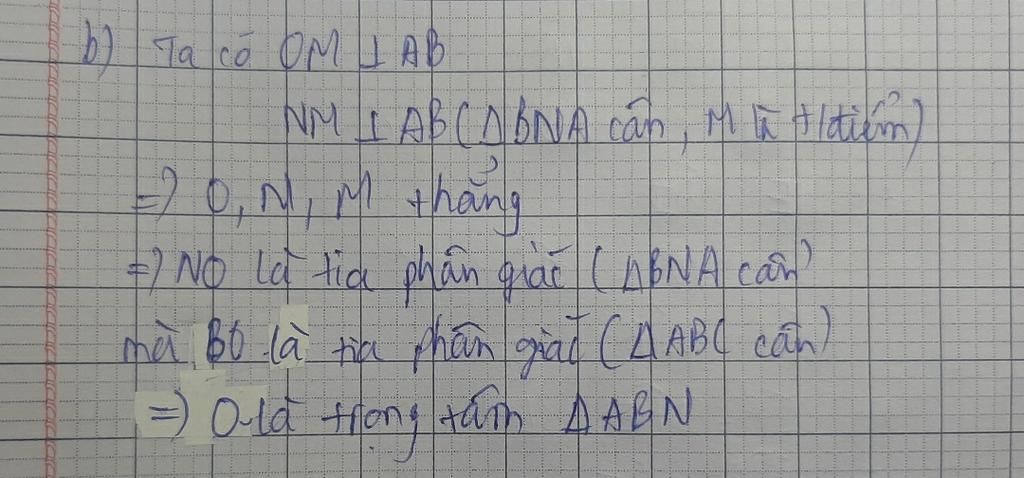 b) Ta có OM ⊥ AB
NM ⊥ AB (ΔBNA cân, M là t/điểm)
=) O, N, M thẳng
=) NO là tia phân giác (ΔBNA cân)
mà BO là tia phân giác (ΔABC cân)
=) O là trọng tâm ΔABN